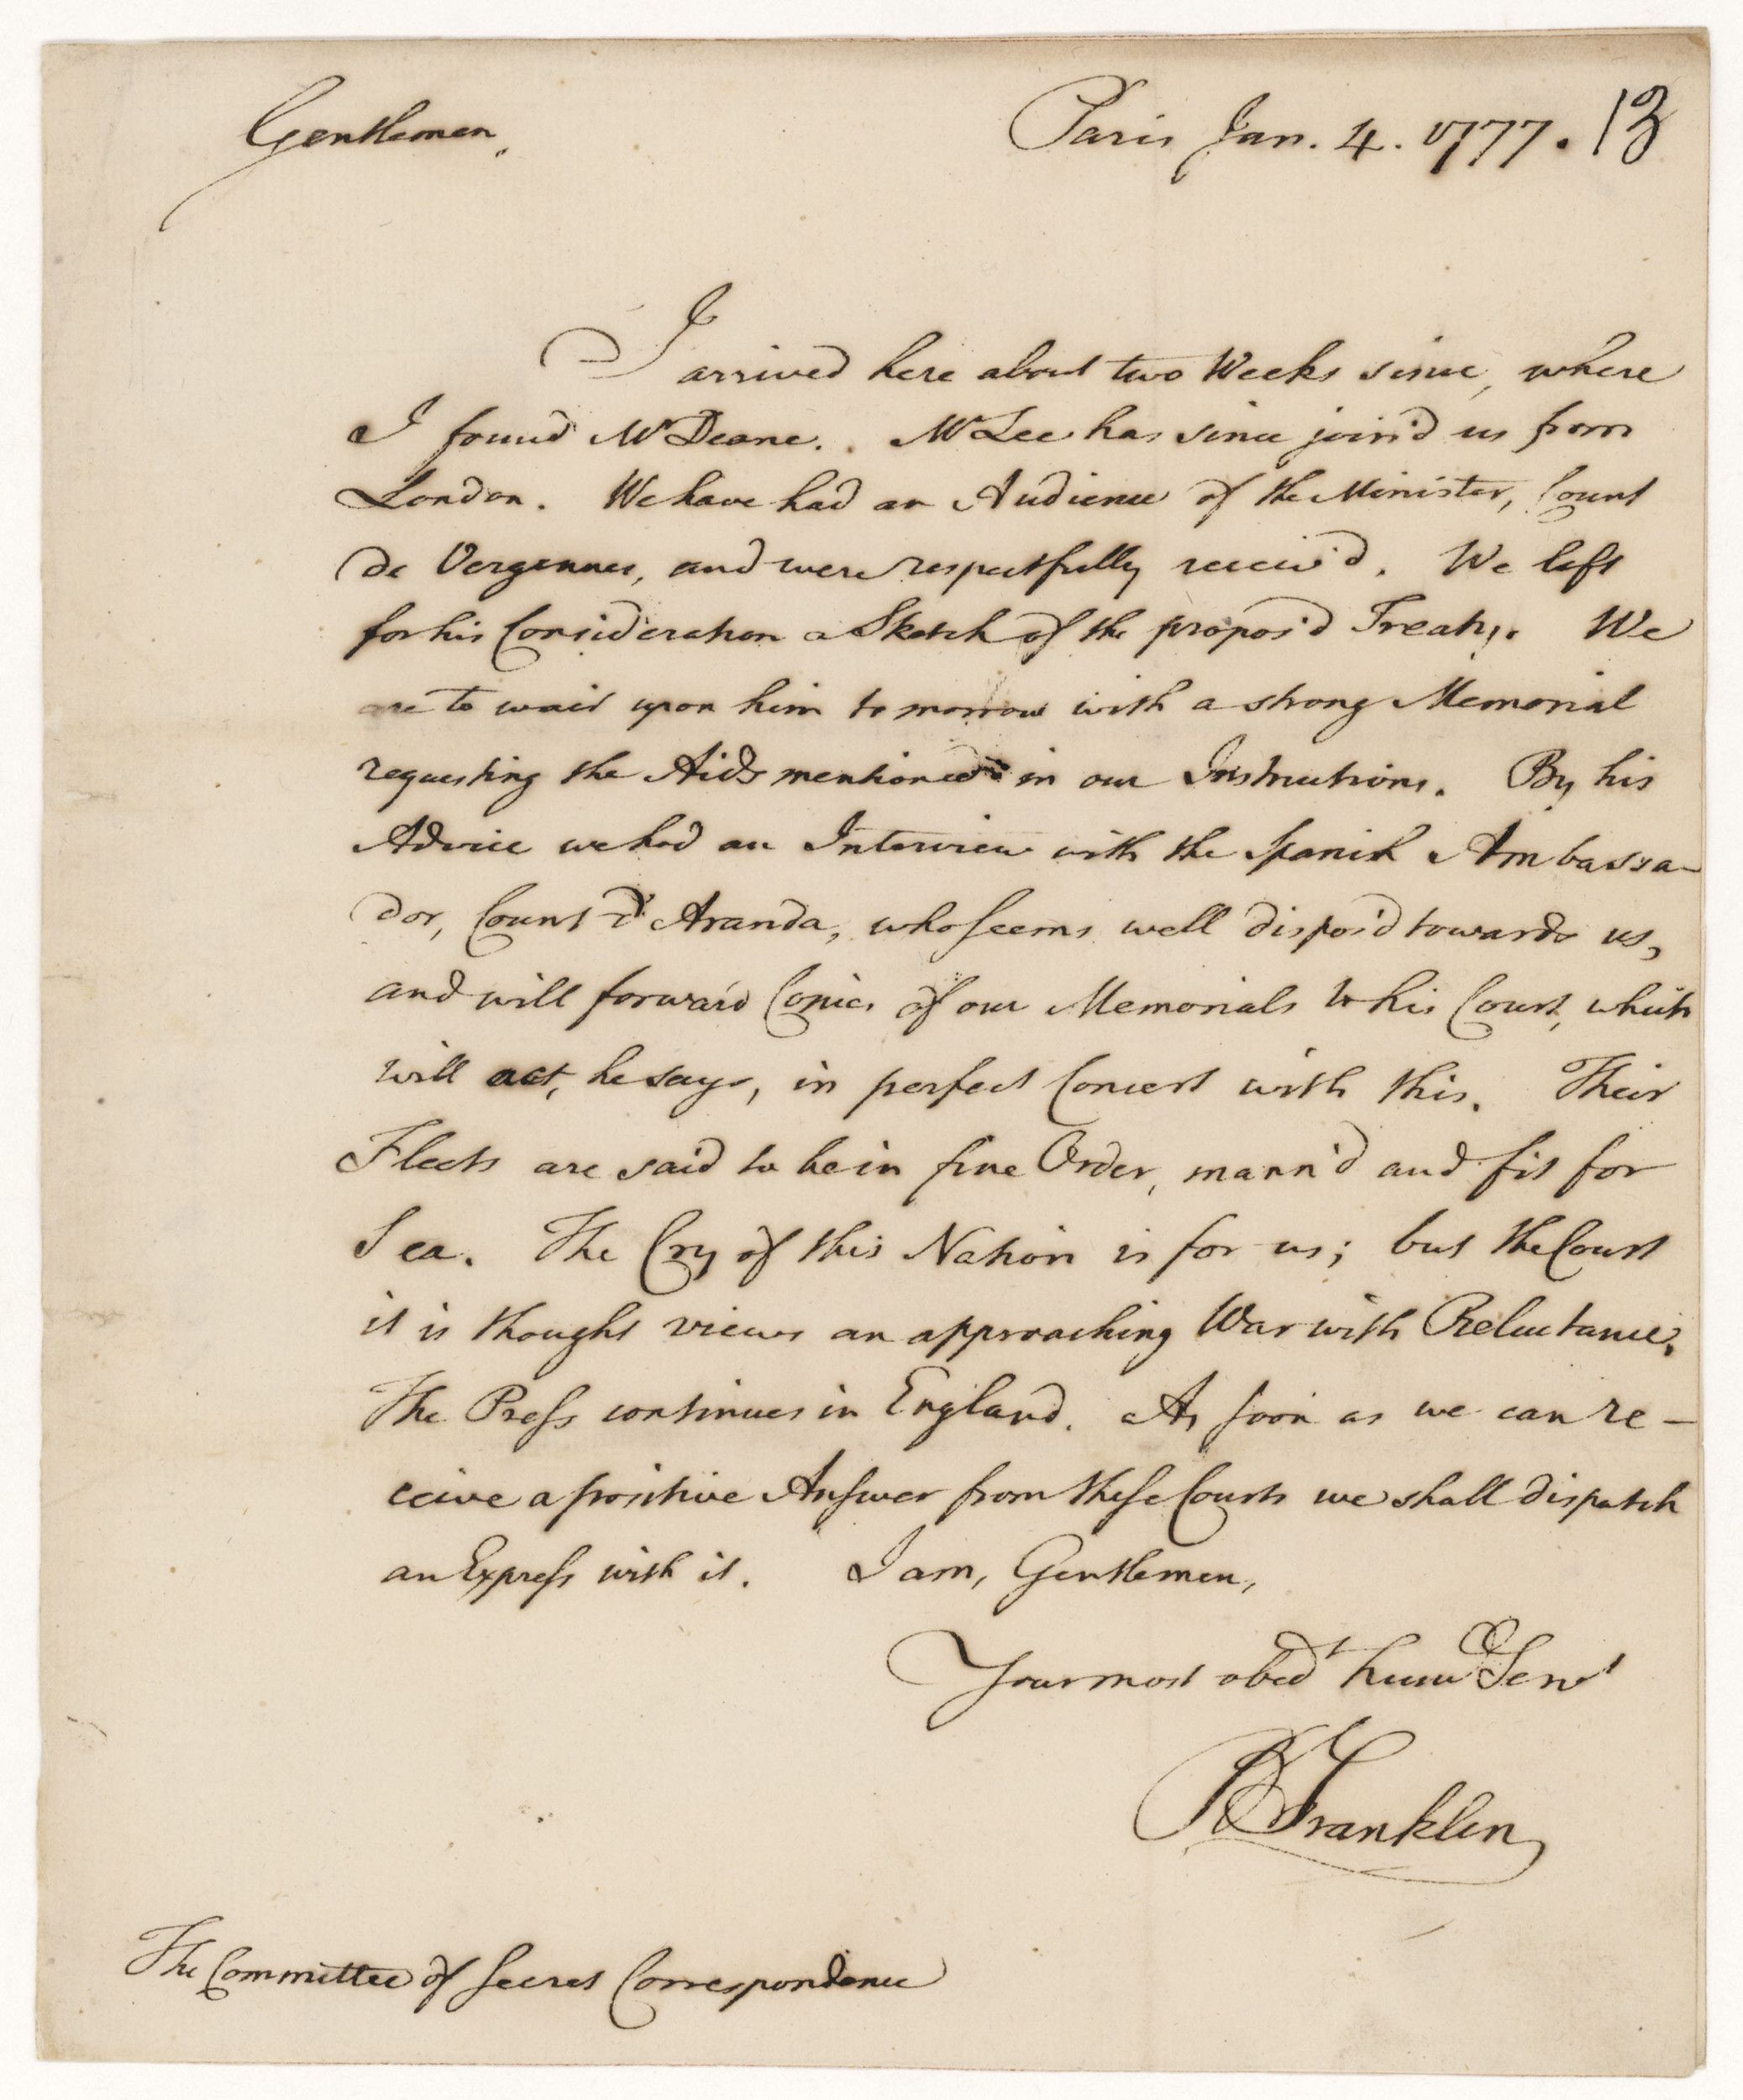 Gentlemen, Paris Jan. 4. 1777. 13
I arrived here about two Weeks since, where
I found Mr Deane. Mr Lee has since join'd us from
London. We have had an Audience of the Minister, Count
de Vergennes, and were respectfully receiv'd. We left
for his Consideration a Sketch of the propos'd Treaty. We
are to wait upon him tomorrow with a strong Memorial
requesting the Aids mentioned in our Instructions. By his
Advice we had an Interview with the Spanish Ambassa-
dor, Count d'Aranda, who seems well dispos'd towards us,
and will forward Copies of our Memorials to his Court, which
will act, he says, in perfect Concert with this. Their
Fleets are said to be in fine Order, mann'd and fit for
Sea. The Cry of this Nation is for us; but the Court
it is thought views an approaching War with Reluctance.
The Press continues in England. As soon as we can re-
ceive a positive Answer from these Courts we shall dispatch
an Express with it. I am, Gentlemen,
Your most obedt hum Servt
B Franklin
The Committee of Secret Correspondence